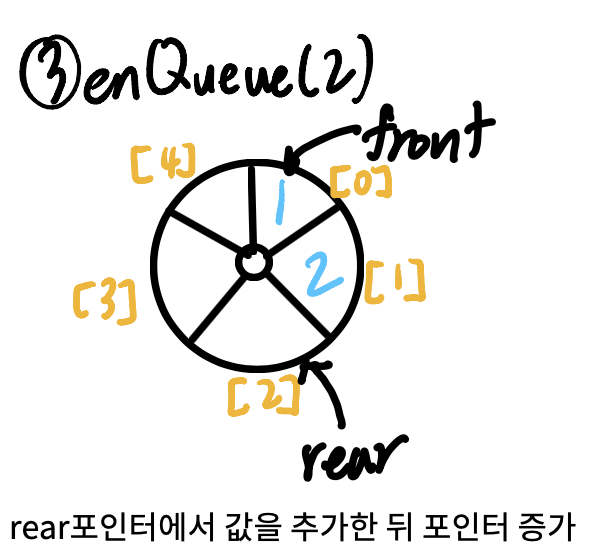 ③enQueue(2)
front
[4]
1
[0]
2
[1]
[3]
[2]
rear
rear포인터에서 값을 추가한 뒤 포인터 증가